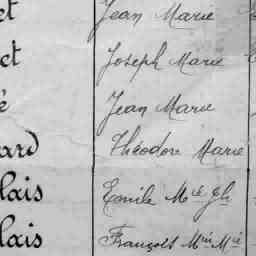 et Jean Marie
et Joseph Marie
é Jean Marie
ard Théodore Marie
lais Emile Mie Jh
lais François Min Mie